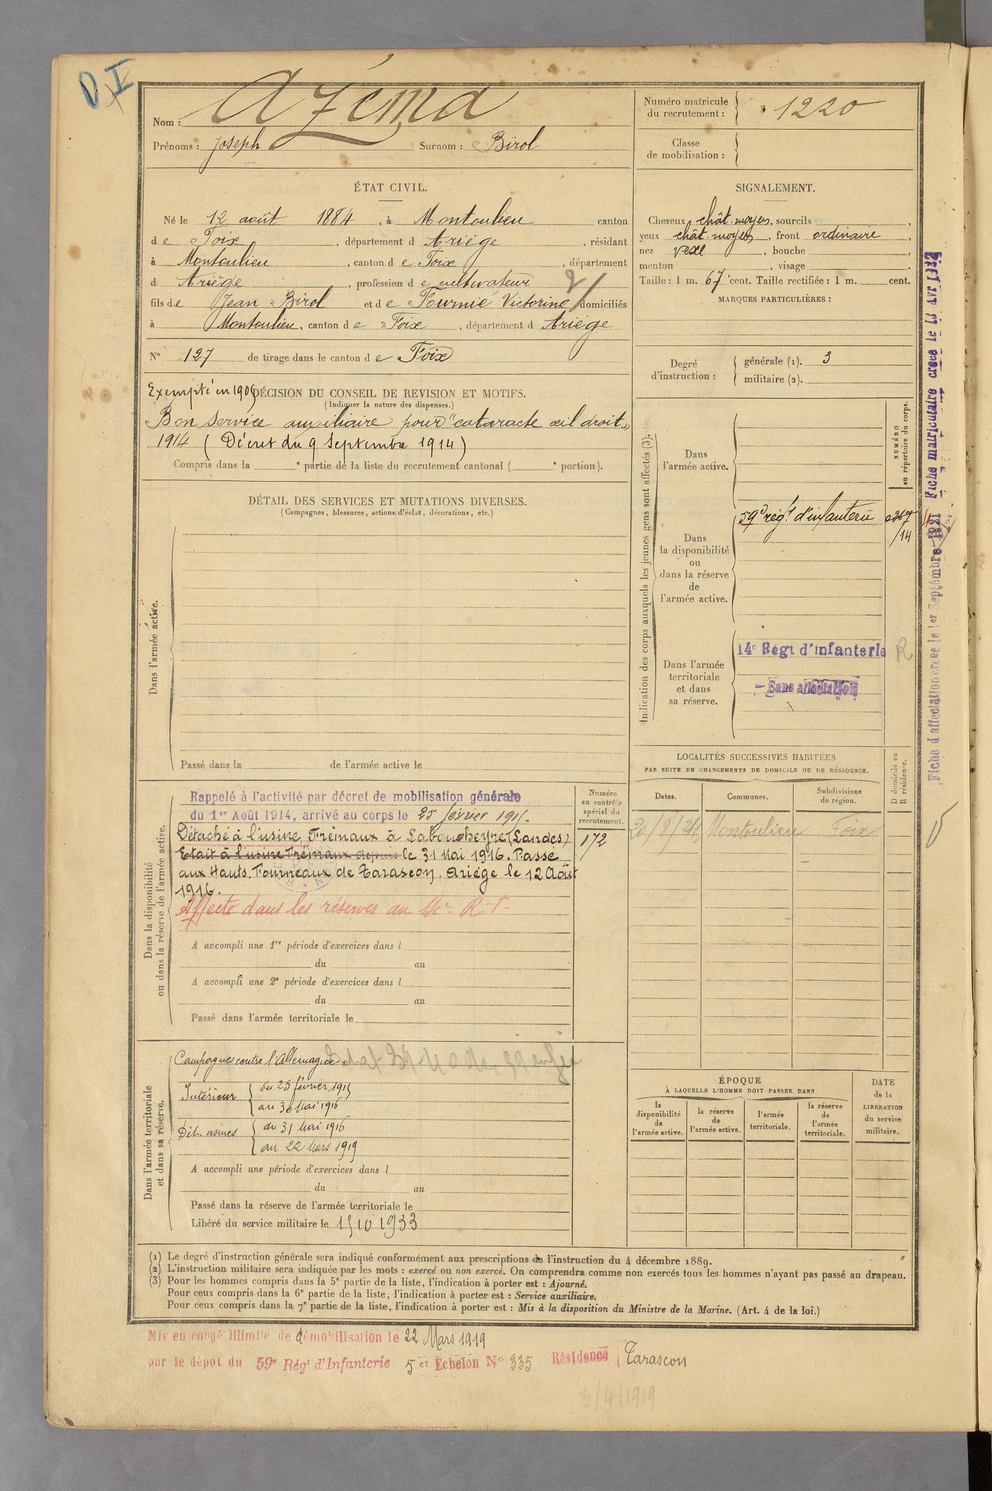 D I
Nom : Azéma
Prénoms : Joseph Surnom : Birol
Numéro matricule du recrutement : 1220
Classe de mobilisation :
ÉTAT CIVIL.
Né le 12 août 1884, à Montoulieu canton
de Foix, département d Ariège, résidant
à Montoulieu, canton de Foix, département
d Ariège, profession de cultivateur
fils de Jean Birol et de Fournié Victorine domiciliés
à Montoulieu, canton de Foix, département d Ariège
N° 127 de tirage dans le canton de Foix
SIGNALEMENT.
Cheveux chât. moyen, sourcils
yeux chât. moyens, front ordinaire
nez vexe, bouche
menton, visage
Taille : 1 m. 67 cent. Taille rectifiée : 1 m. cent.
MARQUES PARTICULIÈRES :
Degré d'instruction : générale (1). 3
militaire (2).
Exempté en 1906 DÉCISION DU CONSEIL DE REVISION ET MOTIFS.
(Indiquer la nature des dispenses.)
Bon service auxiliaire pour "cataracte œil droit"
1914 (Décret du 9 Septembre 1914)
Compris dans la e partie de la liste du recrutement cantonal ( e portion).
DÉTAIL DES SERVICES ET MUTATIONS DIVERSES.
(Campagnes, blessures, actions d'éclat, décorations, etc.)
Dans l'armée active.
Passé dans la de l'armée active le
Indication des corps auxquels les jeunes gens sont affectés (3).
NUMÉRO au répertoire du corps.
Dans l'armée active.
Dans la disponibilité ou dans la réserve de l'armée active.
59e régt d'infanterie
/14
Dans l'armée territoriale et dans sa réserve.
14e Régt d'Infanterie R
Sans affectation
Fiche d'affectation créée le 1er Septembre 1921 Fiche matriculaire créée le
LOCALITÉS SUCCESSIVES HABITÉES
PAR SUITE DE CHANGEMENTS DE DOMICILE OU DE RÉSIDENCE.
Dates. Communes. Subdivisions de région.
D domicile ou R résidence.
Montoulieu Foix
Dans la disponibilité ou dans la réserve de l'armée active.
Numéro au contrôle spécial du recrutement.
172
Rappelé à l'activité par décret de mobilisation générale
du 1er Août 1914, arrivé au corps le 25 février 1915.
Détaché à l'usine Frémaux à Labouheyre (Landes)
Etait à l'usine Frémaux depuis le 31 Mai 1916. Passé
aux Hauts-Fourneaux de Tarascon, Ariège le 12 Août
1916.
Affecté dans les réserves au 14e R. I.
A accompli une 1re période d'exercices dans l
du au
A accompli une 2e période d'exercices dans l
du au
Passé dans l'armée territoriale le
Dans l'armée territoriale et dans sa réserve.
Campagnes contre l'Allemagne.
Intérieur { du 25 février 1915
au 30 Mai 1916
Dét. usines { du 31 Mai 1916
au 22 Mars 1919
A accompli une période d'exercices dans l
du au
Passé dans la réserve de l'armée territoriale le
Libéré du service militaire le 15 10 1933
ÉPOQUE
À LAQUELLE L'HOMME DOIT PASSER DANS
la disponibilité de l'armée active.
la réserve de l'armée active.
l'armée territoriale.
la réserve de l'armée territoriale.
DATE de la LIBÉRATION du service militaire.
(1) Le degré d'instruction générale sera indiqué conformément aux prescriptions de l'instruction du 4 décembre 1889.
(2) L'instruction militaire sera indiquée par les mots : exercé ou non exercé. On comprendra comme non exercés tous les hommes n'ayant pas passé au drapeau.
(3) Pour les hommes compris dans la 5e partie de la liste, l'indication à porter est : Ajourné.
Pour ceux compris dans la 6e partie de la liste, l'indication à porter est : Service auxiliaire.
Pour ceux compris dans la 7e partie de la liste, l'indication à porter est : Mis à la disposition du Ministre de la Marine. (Art. 4 de la loi.)
Mis en congé illimité de démobilisation le 22 Mars 1919
par le dépôt du 59e Régt d'Infanterie 5 et Echelon N° 335 Résidence Tarascon
3/4/1919